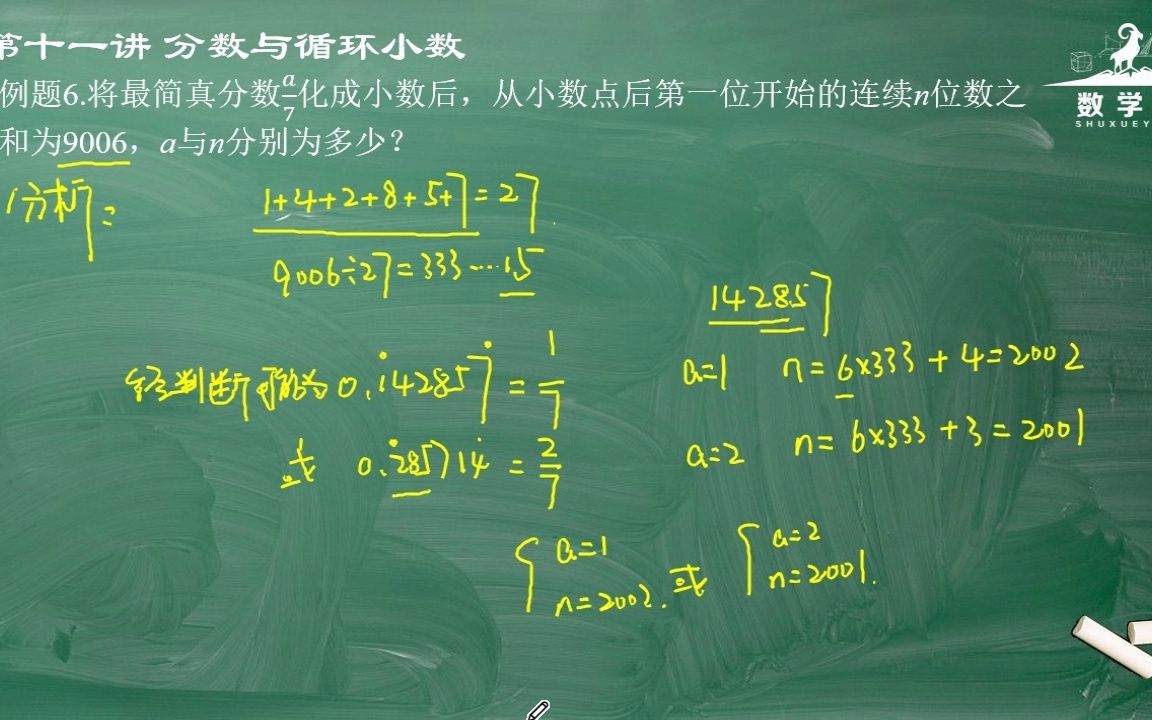 第十一讲 分数与循环小数
例题6.将最简真分数a/7化成小数后，从小数点后第一位开始的连续n位数之
和为9006，a与n分别为多少？
数学
SHUXUEY
分析:
1+4+2+8+5+7=27.
9006÷27=333…15
142857
经判断可能为 0.1̇42857̇ = 1/7
a=1 n=6×333+4=2002
或 0.2̇85714̇ = 2/7
a=2 n=6×333+3=2001
{a=1 n=2002. 或 {a=2 n=2001.